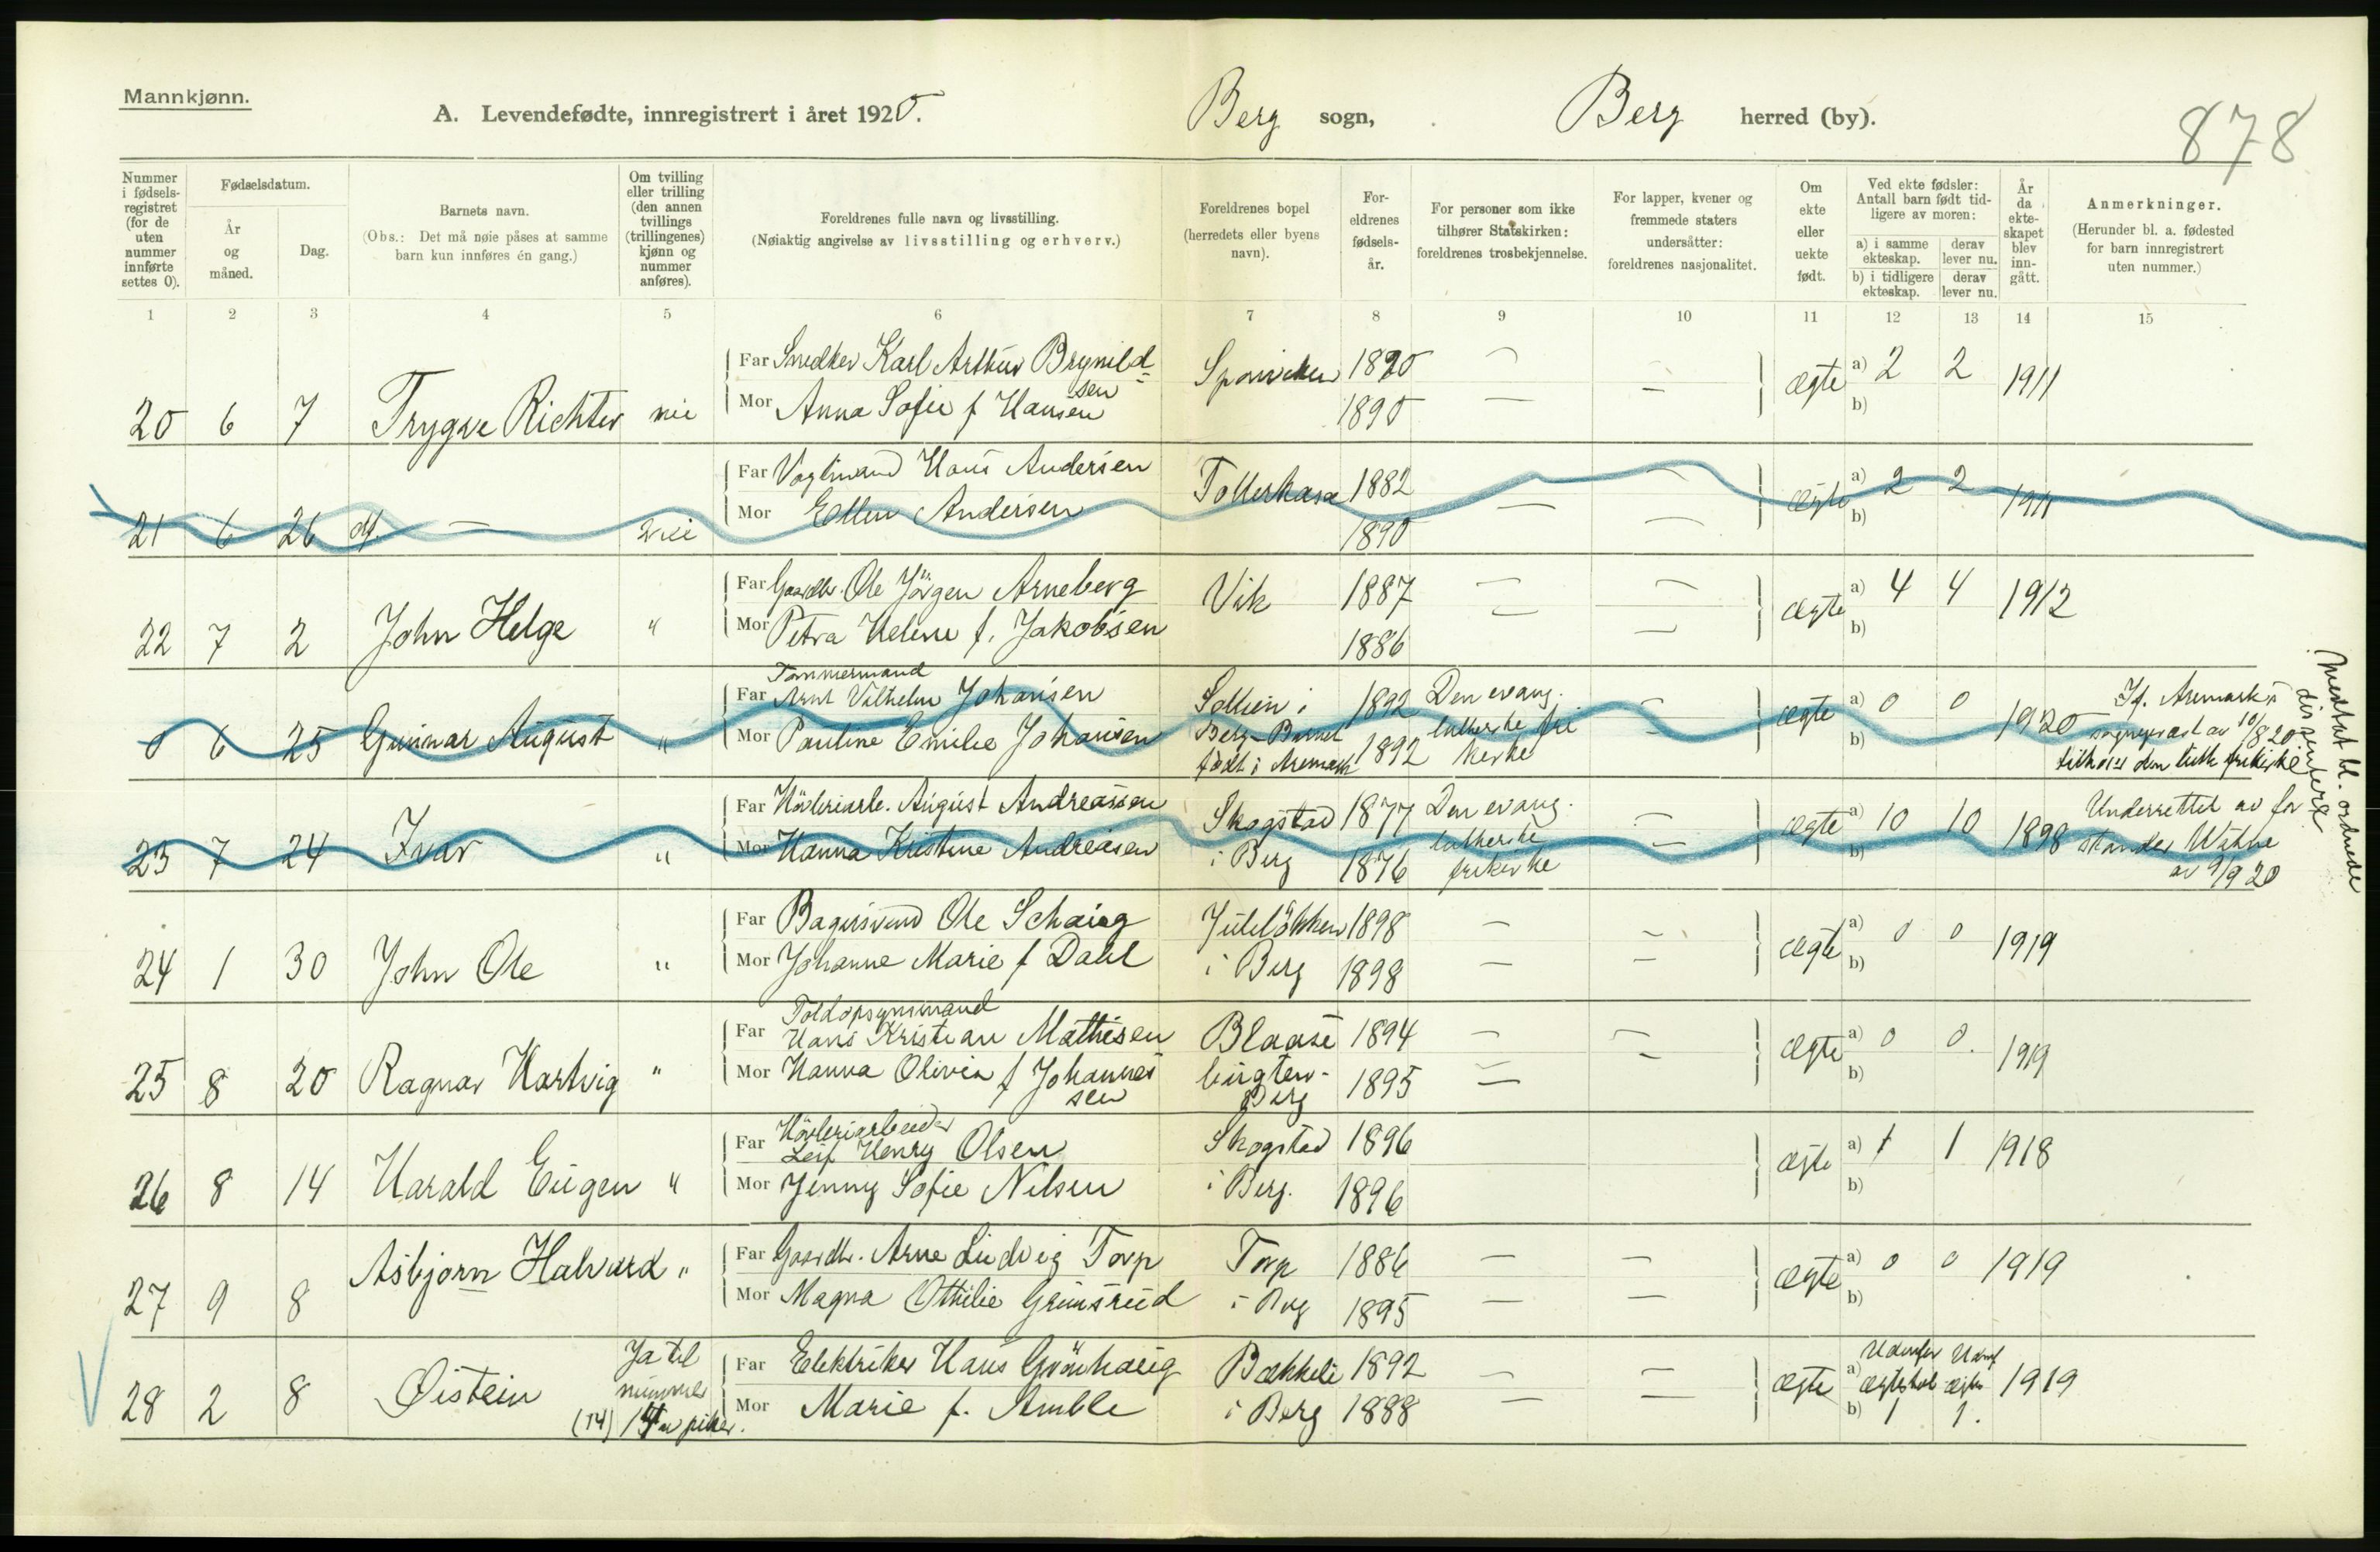 Mannkjønn.
A. Levendefødte, innregistrert i året 1920.
Berg sogn, Berg herred (by).
878
Nummer i fødselsregistret (for de uten nummer innførte settes 0).
Fødselsdatum.
År og måned.
Dag.
Barnets navn.
(Obs.: Det må nøie påses at samme barn kun innføres én gang.)
Om tvilling eller trilling (den annen tvillings (trillingenes) kjønn og nummer anføres).
Foreldrenes fulle navn og livsstilling.
(Nøiaktig angivelse av livsstilling og erhverv.)
Foreldrenes bopel (herredets eller byens navn).
Foreldrenes fødselsår.
For personer som ikke tilhører Statskirken: foreldrenes trosbekjennelse.
For lapper, kvener og fremmede staters undersåtter: foreldrenes nasjonalitet.
Om ekte eller uekte født.
Ved ekte fødsler: Antall barn født tidligere av moren:
a) i samme ekteskap.
derav lever nu.
b) i tidligere ekteskap.
derav lever nu.
År da ekteskapet blev inngått.
Anmerkninger.
(Herunder bl. a. fødested for barn innregistrert uten nummer.)
1 2 3 4 5 6 7 8 9 10 11 12 13 14 15
Far Snedker Karl Arthur Brynild= Sponviken 1890 — — ægte a) 2 2 1911
sen
20 6 7 Trygve Richter nei Mor Anna Sofie f Hansen 1890 — — b)
Far Hans Andersen Tollerkasa 1882 — — ægte a) 2 2 1911
21 6 26 df. — Mor Ellen Andersen 1890 — — b)
Far Gaardbr. Ole Jörgen Arneberg Vik 1887 — — ægte a) 4 4 1912
22 7 2 John Helge " Mor Petra Helene f. Jakobsen 1886 — — b)
Tømmermand
Far Arnt Vilhelm Johansen Solheim i 1892 Den evang. — ægte a) 0 0 1920 If. Aremark's
0 6 25 Gunnar August " Mor Pauline Emilie Johansen Berg - Barnet lutherske fri — b) sogneprest av 10/8 20
født i Aremark 1892 kirke tilhører den luth frikirke
Medtat bl. ordnede dissentere
Far Hövleriarb. August Andreassen Skogstad 1877 Den evang. — ægte a) 10 10 1898 Underrettet av for
23 7 24 Ivar " Mor Hanna Kristine Andreasen i Berg 1876 lutherske frikirke — b) stander
av 9/9 20
Far Bagersvend Ole Schaug Julelökken 1898 — — ægte a) 0 0 1919
24 1 30 John Ole " Mor Johanne Marie f Dahl i Berg 1898 — — b)
Toldopsynsmand
Far Hans Kristian Mathisen Blaase 1894 — — ægte a) 0 0. 1919
25 8 20 Ragnar Hartvig " Mor Hanna Olivia f Johannes bugten - 1895 — — b)
sen Berg
Hövleriarbeider
Far Leif Henry Olsen Skogstad 1896 ægte a) 1 1 1918
26 8 14 Harald Eugen " Mor Jenny Sofie Nilsen i Berg. 1896 b)
Far Gaardbr. Arne Ludvig Torp Torp 1886 — — ægte a) 0 0 1919
27 9 8 Asbjørn Halvard " Mor Magna Othilie Grimsrud i Berg 1895 — — b)
Ja til Far Elektriker Hans Grönhaug Bækkeli 1892 — — ægte a) Udenfor Udenf. 1919
28 2 8 Øistein nummer Mor Marie f. Amble i Berg 1888 — — ægteskab ægtes
(14) 14 av piker. b) 1 1.